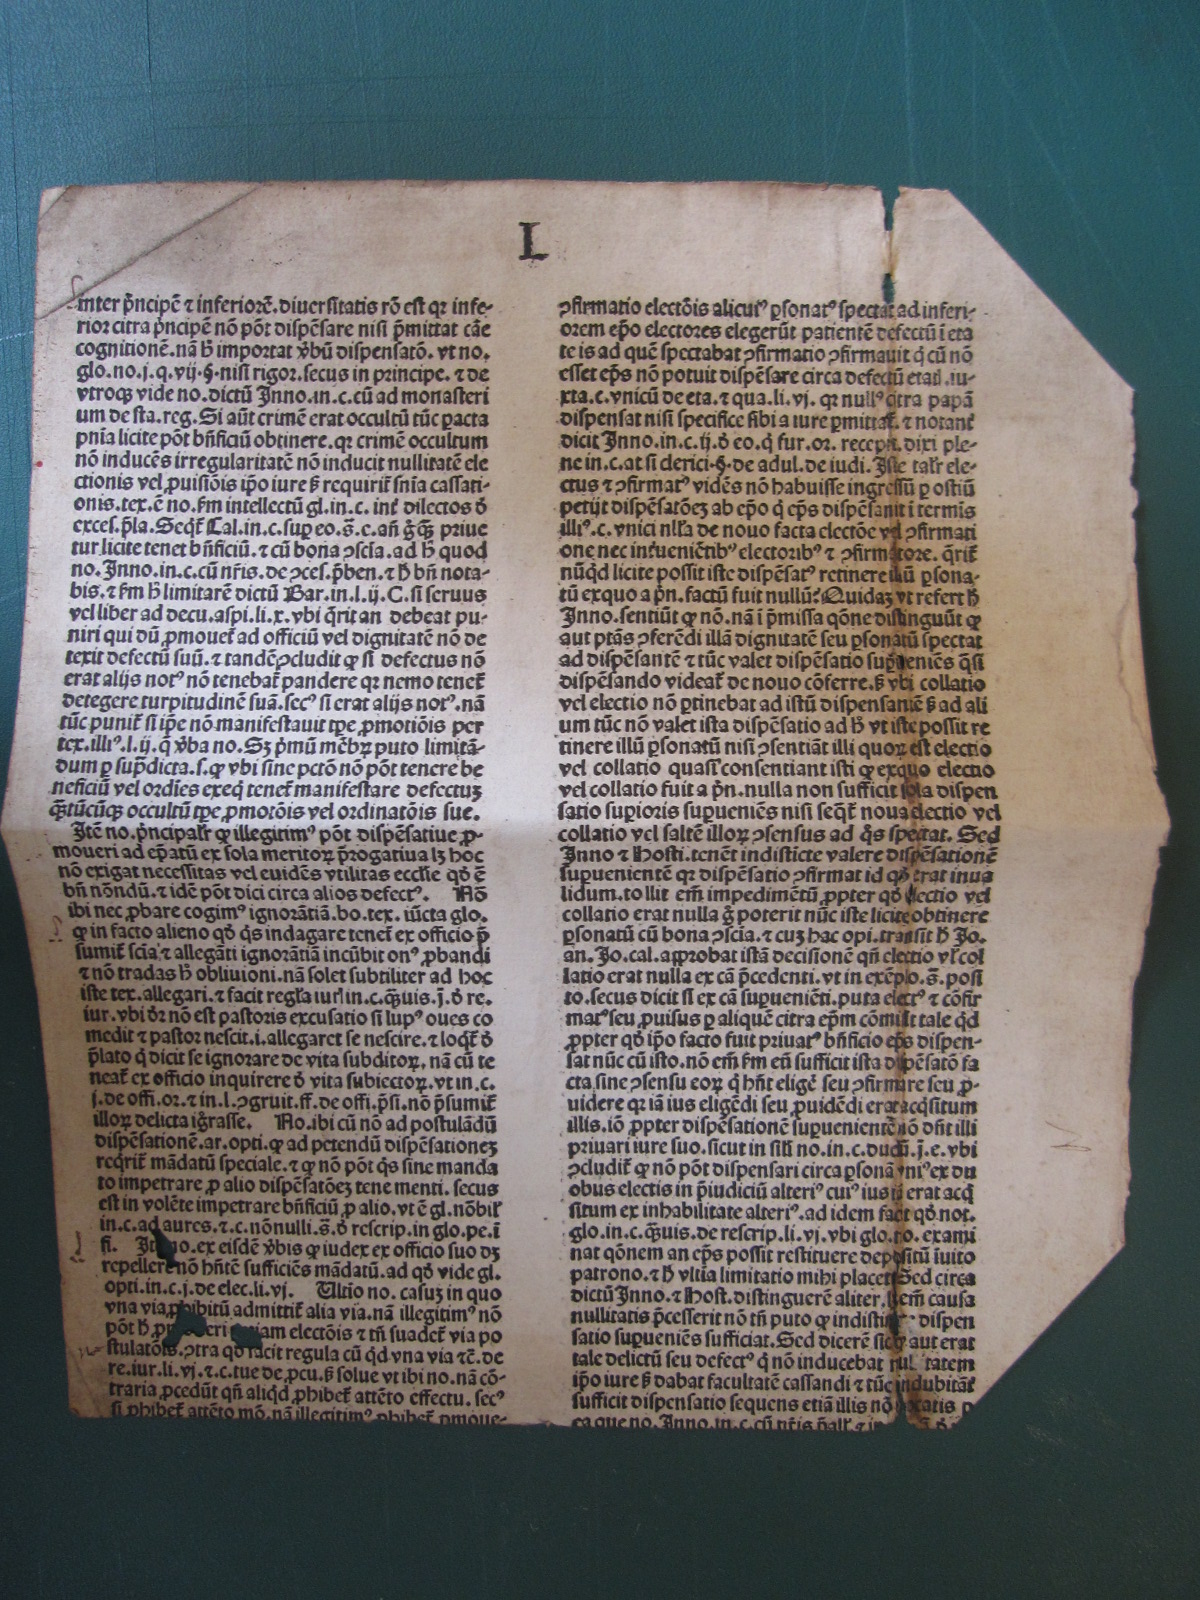 L
inter p̄ncipē ⁊ inferiorē.diuersitatis rō est qꝛ infe-
rior citra p̄ncipē nō pōt dispēsare nisi p̄mittat cāe
cognitionē.nā h̄ importat v̄bū dispensatō. vt no.
glo.no.j.q.vij.§.nisi rigor.secus in principe. ⁊ de
vtroqꝫ vide no.dictū Inno.in.c.cū ad monasteri
um de sta.reg. Si aūt crimē erat occultū tūc ꝑacta
pn̄ia licite pōt bn̄ficiū obtinere.qꝛ crimē occultum
nō inducēs irregularitatē nō inducit nullitatē ele
ctionis vel ꝓuisiōis ip̄o iure ꝫ requirit̄ sn̄ia cassati-
onis.tex.ē no.s̄m intellectū gl.in.c. int̄ dilectos ð
exces.p̄la. Seqt̄ Cal.in.c.suꝑ eo.s̄.c.
tur licite tenet bn̄ficiū.⁊ cū bona ꝯscīa.ad h̄ quod
no. Inno.in.c.cū nr̄is.de ꝯces.p̄ben.⁊ h̄ bn̄ nota-
bis.⁊ s̄m h̄ limitarē dictū Bar.in.l.ij. C.si seruus
vel liber ad decu.aspi.li.x.vbi q̄rit an debeat pu-
niri qui dū ꝓmouet̄ ad officiū vel dignitatē nō de
texit defectū suū.⁊ tandē ꝯcludit ꝙ si defectus nō
erat alijs notꝰ nō tenebat̄ pandere qꝛ nemo tenet̄
detegere turpitudinē suā.secꝰ si erat alijs notꝰ.nā
tūc punit̄ si ip̄e nō manifestauit tp̄e ꝓmotiōis per
tex.illiꝰ.l.ij.q̄ v̄ba no. Sꝫ p̄mū mēbꝝ puto limitā-
dum ꝑ sup̄dicta.s.ꝙ vbi sine pctō nō pōt tenere be
neficiū vel ordīes exeq̄ tenet̄ manifestare defectuꝫ
occultū tp̄e ꝓmotōis vel ordinatōis sue.
Itē no.p̄ncipalr̄ ꝙ illegitimꝰ pōt dispēsatiue ꝓ-
moueri ad ep̄atū ex sola meritoꝝ p̄rogatiua lꝫ hoc
nō exigat necessitas vel euidēs vtilitas eccl̄ie qð ē
bn̄ nōndū.⁊ idē pōt dici circa alios defectꝰ. Nō
ibi nec ꝓbare cogimꝰ ignorātiā.bo.tex. iūcta glo.
ꝙ in facto alieno qð q̄s indagare tenet̄ ex officio p̄
sumit̄ scīa ⁊ allegāti ignorātiā incūbit onꝰ ꝓbandi
⁊ nō tradas h̄ obliuioni.nā solet subtiliter ad hoc
iste tex.allegari.⁊ facit regl̄a iur̄ in.c. .j̄.ð re.
iur.vbi ðr̄ nō est pastoris excusatio si lupꝰ oues co
medit ⁊ pastor nescit.i.allegaret se nescire.⁊ loqt̄ ð
p̄lato q̄ dicit se ignorare de vita subditoꝝ. nā cū te
neat̄ ex officio inquirere ð vita subiectoꝝ.vt in.c.
j.de offi.or.⁊ in.l.ꝯgruit.ff.de offi.p̄si.nō p̄sumit̄
illoꝝ delicta ignr̄asse. No.ibi cū nō ad postulādū
dispēsationē.ar.opti.ꝙ ad petendū dispēsationeꝫ
reqrit̄ mādatū speciale.⁊ ꝙ nō pōt q̄s sine manda
to impetrare ꝓ alio dispēsatōeꝫ tene menti. secus
est in volēte impetrare bn̄ficiū ꝓ alio.vt ē gl.nōbil̄
in.c.ad aures.⁊.c.nōnulli.s̄.ð rescrip.in glo.pe.ī
fi. Itē no.ex eisdē v̄bis ꝙ iudex ex officio suo dꝫ
repellere nō hn̄tē sufficiēs mādatū.ad qð vide gl.
opti.in.c.j.de elec.li.vj. Ultīo no. casuꝫ in quo
vna via ꝓhibitū admittit̄ alia via.nā illegitimꝰ nō
pōt h̄ electōis ⁊ tn̄ suadet̄ via po
stulatōis.ꝯtra qð facit regula cū qd̄ vna via ⁊c̄. de
re.iur.li.vj.⁊.c.tue de.ꝓcu.ꝫ solue vt ibi no.nā cō-
traria ꝓcedūt qn̄ aliqd̄ ꝓhibet̄ attēto effectu. secꝰ
si ꝓhibet̄ attēto mō.nā illegitimꝰ ꝓhibet̄ ꝓmoue-
ꝯfirmatio electōis alicuiꝰ ꝑsonatꝰ spectat ad inferi-
orem ep̄o electores elegerūt patientē defectū ī eta
te is ad quē spectabat ꝯfirmatio ꝯfirmauit q̄ cū nō
esset ep̄s nō potuit dispēsare circa defectū etatis.iu-
xta.c.vnicū de eta.⁊ qua.li.vj. qꝛ nullꝰ citra papā
dispensat nisi specifice sibi a iure ꝑmittat̄.⁊ notant̄
dicit Inno.in.c.ij.ð eo.q̄ fur.or. recepit. dixi ple-
ne in.c.at si clerici.§.de adul.de iudi. Iste talr̄ ele-
ctus ⁊ ꝯfirmatꝰ vidēs nō habuisse ingressū ꝑ ostiū
petijt dispēsatōeꝫ ab ep̄o q̄ ep̄s dispēsauit ī termīs
illiꝰ.c.vnici nl̄la de nouo facta electōe vel ꝯfirmati
one nec interueniētibꝰ electoribꝰ ⁊ ꝯfirmatore. q̄rit̄
nūqd̄ licite possit iste dispēsatꝰ retinere illū ꝑsona-
tū ex quo a pn̄.factū fuit nullū? Quidaꝫ vt refert h̄
Inno.sentiūt ꝙ nō.nā ī p̄missa qōne distinguūt ꝙ
aut ptās ꝯferēdi illā dignitatē seu ꝑsonatū spectat
ad dispēsantē ⁊ tūc valet dispēsatio suꝑueniēs q̄si
dispēsando videat̄ de nouo cōferre.ꝫ vbi collatio
vel electio nō ꝑtinebat ad istū dispensantē ꝫ ad ali
um tūc nō valet ista dispēsatio ad h̄ vt iste possit re
tinere illū ꝑsonatū nisi ꝯsentiāt illi quoꝝ est electio
vel collatio quasi consentiant isti ꝙ exquo electio
vel collatio fuit a pn̄.nulla non sufficit sola dispen
satio suꝑioris suꝑueniēs nisi seqt̄ noua electio vel
collatio vel saltē illoꝝ ꝯsensus ad q̄s spectat. Sed
Inno ⁊ Hosti.tenēt indisticte valere dispēsationē
suꝑuenientē qꝛ dispēsatio ꝯfirmat id qð erat inua
lidum.tollit em̄ impedimētū ꝓpter qð electio vel
collatio erat nulla ḡ poterit nūc iste licite obtinere
ꝑsonatū cū bona ꝯscīa.⁊ cuꝫ hac opi.transit h̄ Jo.
an. Jo.cal.approbat istā decisionē qn̄ electio vl̄ col
latio erat nulla ex cā p̄cedenti.vt in exēplo.s̄.posi
to.secus dicit si ex cā suꝑueniēti.puta electꝰ ⁊ cōfir
matꝰ seu ꝓuisus ꝑ aliquē citra ep̄m cōmisit tale qd̄
ꝓpter qð ip̄o facto fuit priuatꝰ bn̄ficio ep̄s dispen-
sat nūc cū isto.nō em̄ s̄m eū sufficit ista dispēsatō fa
cta sine ꝯsensu eoꝝ q̄ hn̄t eligē seu ꝯfirmare seu ꝓ-
uidere qꝛ iā ius eligēdi seu ꝓuidēdi erat acq̄situm
illis.iō ꝓpter dispēsationē suꝑuenientē nō dn̄t illi
priuari iure suo.sicut in sil̄i no.in.c.dudū.j̄.e.vbi
ꝯcludit̄ ꝙ nō pōt dispensari circa ꝑsonā vniꝰ ex du
obus electis in p̄iudiciū alteriꝰ cuiꝰ ius ij erat acq̄
situm ex inhabilitate alteriꝰ.ad idem facit qð not.
glo.in.c. .de rescrip.li.vj.vbi glo.no. exami
nat qōnem an ep̄s possit restituere depositū īuito
patrono.⁊ h̄ vltīa limitatio mihi placet. Sed circa
dictū Inno.⁊ Host.distinguerē aliter. causa
nullitatis p̄cesserit nō tn̄ puto ꝙ dispen
satio suꝑueniēs sufficiat. Sed dicerē sic ꝙ aut erat
tale delictū seu defectꝰ q̄ nō inducebat nullitatem
ip̄o iure ꝫ dabat facultatē cassandi ⁊ tūc indubitāt̄
sufficit dispensatio sequens etiā illis nō vocatis ꝑ
ea que no. Inno.in.c.cū nr̄is